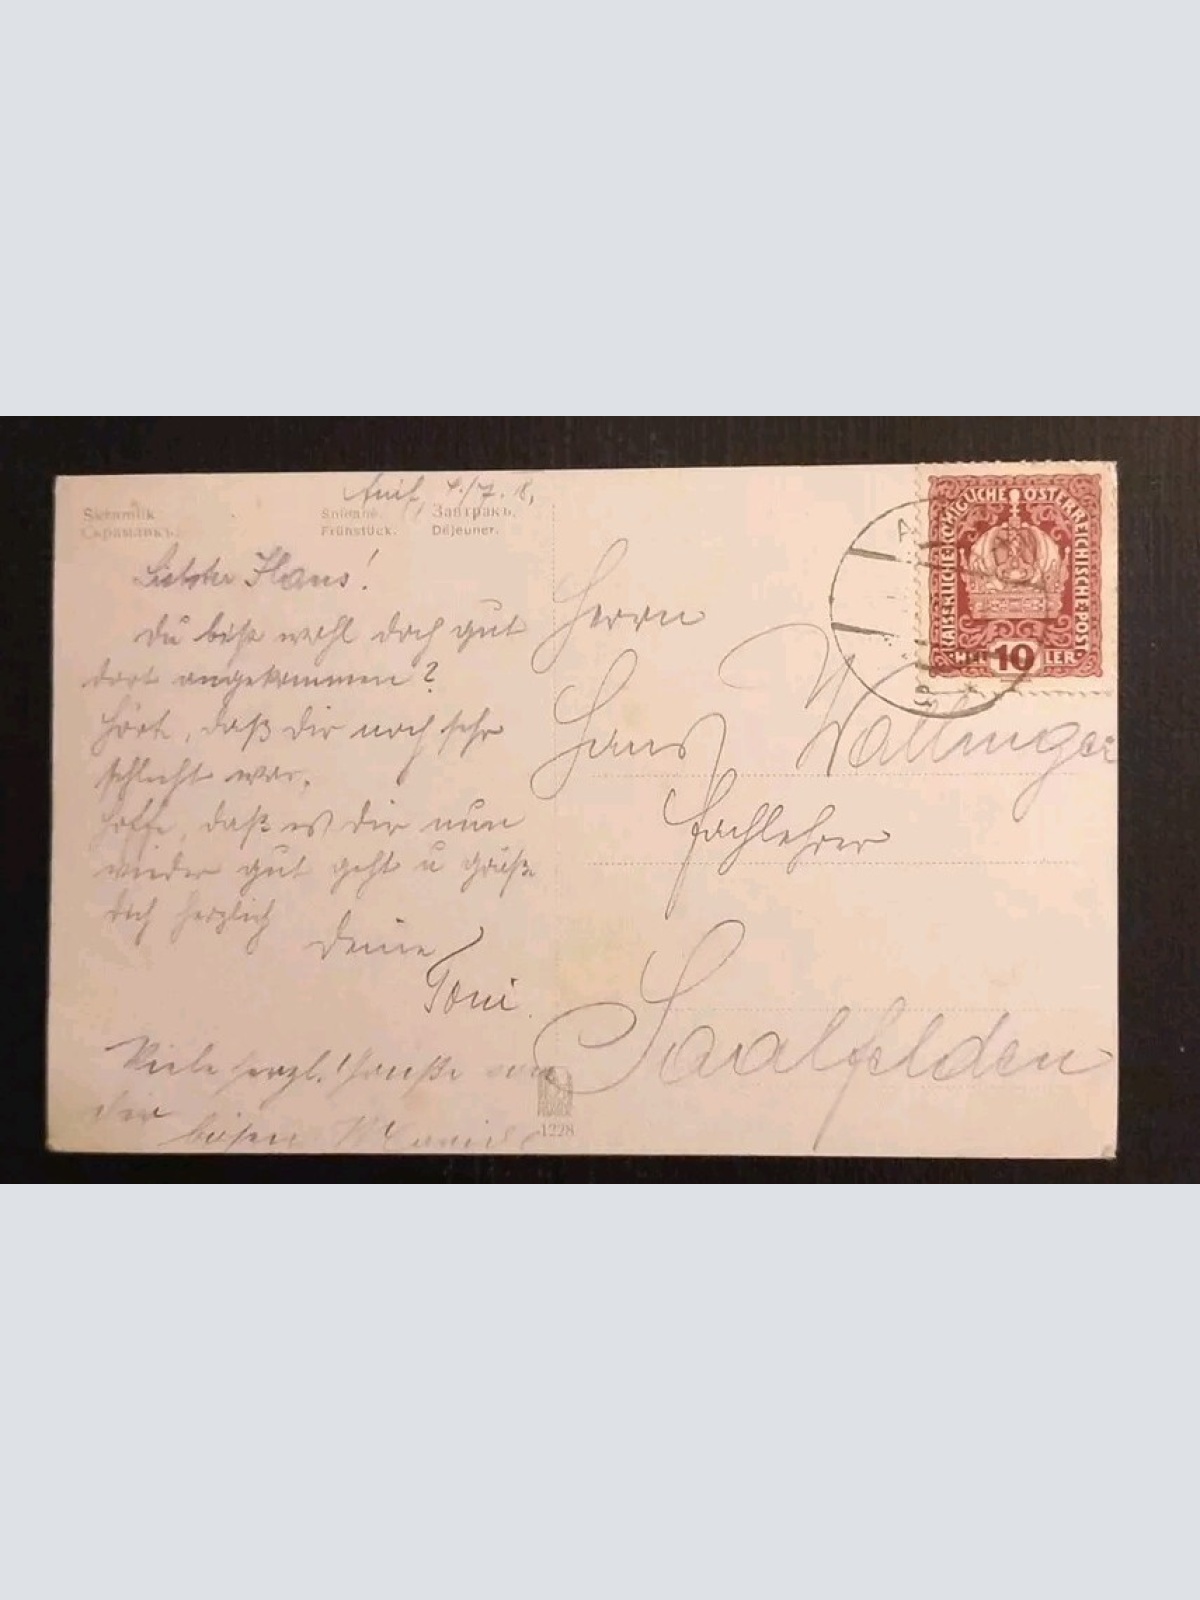 Anif, 4./7. 18,
Skramlik
Скрамликъ.
Snídaně.
Завтракъ.
Frühstück.
Déjeuner.
Liebster Hans!
Du bist wohl doch gut
dort angekommen?
Hörte, daß Dir noch sehr
schlecht war.
Hoffe, daß es Dir nun
wieder gut geht u grüße
Dich herzlich
Deine
Toni.
Viele herzl. Grüße von
der
bösen
Herrn
Hans Wallinger
Fachlehrer
Saalfelden
KAISERLICHE KÖNIGLICHE ÖSTERREICHISCHE POST
HELLER
10
1228